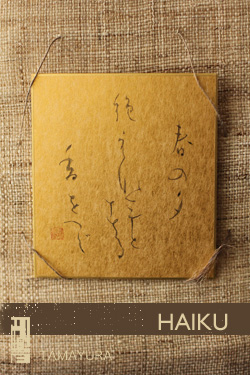 春の夕
絶えなむとする
香をつぐ
HAIKU
TAMAYURA